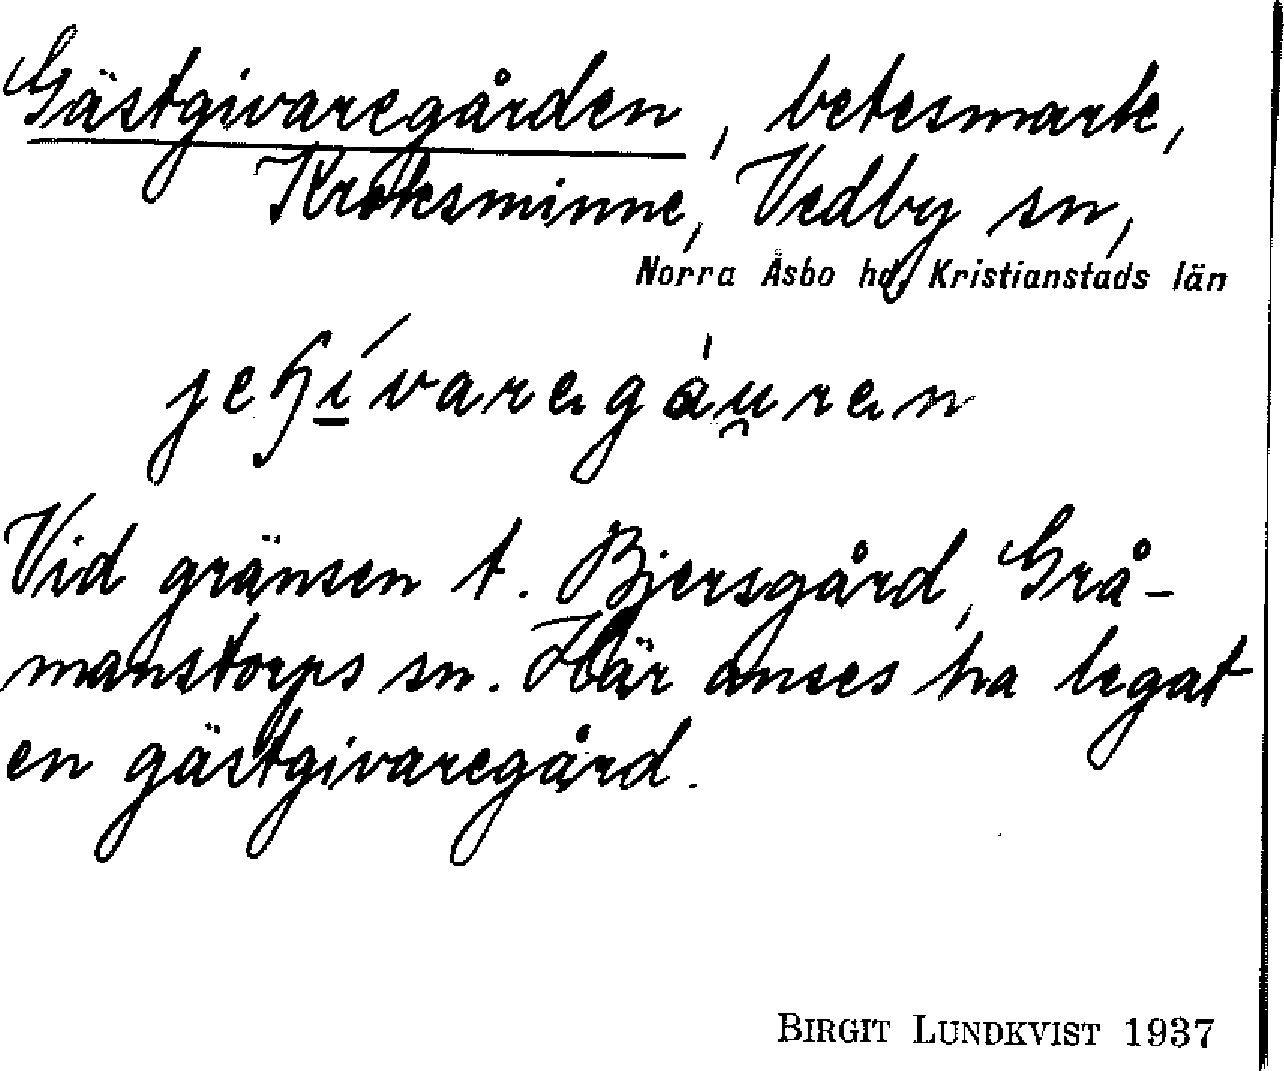 Gästgivaregården, betesmark,
Kroksminne, Vedby sn,
Norra Åsbo hd, Kristianstads län
Vid gränsen t. Bjersgård, Grå-
manstorps sn. Här anses ha legat
en gästgivaregård.
BIRGIT LUNDKVIST 1937